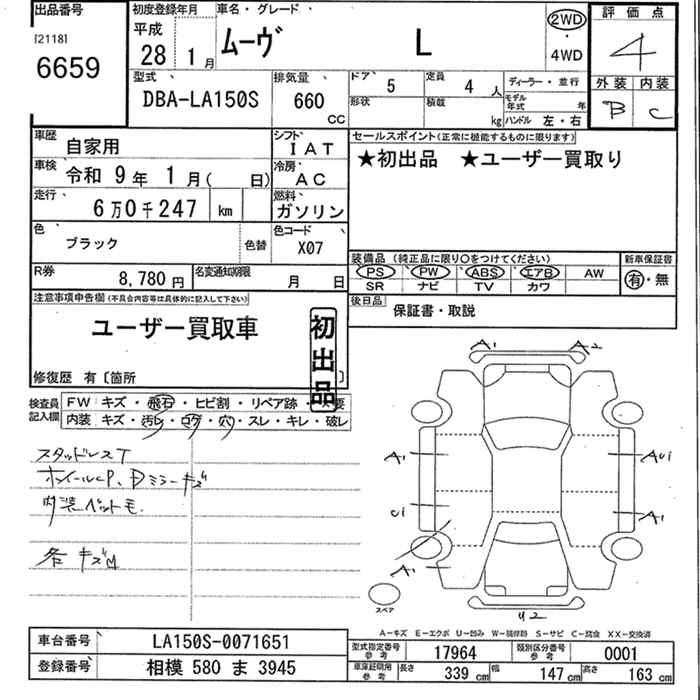 出品番号
[2118]
6659
初度登録年月
平成
28 1 月
車名・グレード
ムーヴ L
2WD
・
4WD
評価点
4
外装 内装
B C
型式
DBA-LA150S
排気量
660
CC
ドア
5
定員
4 人
形状
積載
kg
ディーラー・並行
モデル年式 年
ハンドル 左・右
車歴
自家用
シフト
IAT
車検
令和 9 年 1 月( 日)
冷房
AC
走行
6万0千247 km
燃料
ガソリン
色
ブラック
色替
色コード
X07
R券
8,780 円
名変通知期限
月 日
セールスポイント(正常に機能するものに限ります)
★初出品 ★ユーザー買取り
装備品(純正品に限り○をつけてください)
PS PW ABS エアB AW
SR ナビ TV カワ
新車保証書
有・無
後日品
保証書・取説
注意事項申告欄(不具合内容等は具体的に記入して下さい)
ユーザー買取車
初出品
修復歴 有〔箇所 〕
検査員記入欄
FW キズ・飛石・ヒビ割・リペア跡・
内装 キズ・汚レ・コゲ・穴・スレ・キレ・破レ
スタッドレスT
ホイールCP、Dミラーキズ
内装ペットモ.
各キズM
A1 A2
A1 AUi
Ci A1
A1
スペア
U2
A-キズ E-エクボ U-凹み W-補修跡 S-サビ C-腐食 XX-交換済
車台番号
LA150S-0071651
登録番号
相模 580 ま 3945
型式指定番号
参考
17964
類別区分番号
参考
0001
車庫証明用
参考
長さ 339 cm 幅 147 cm 高さ 163 cm